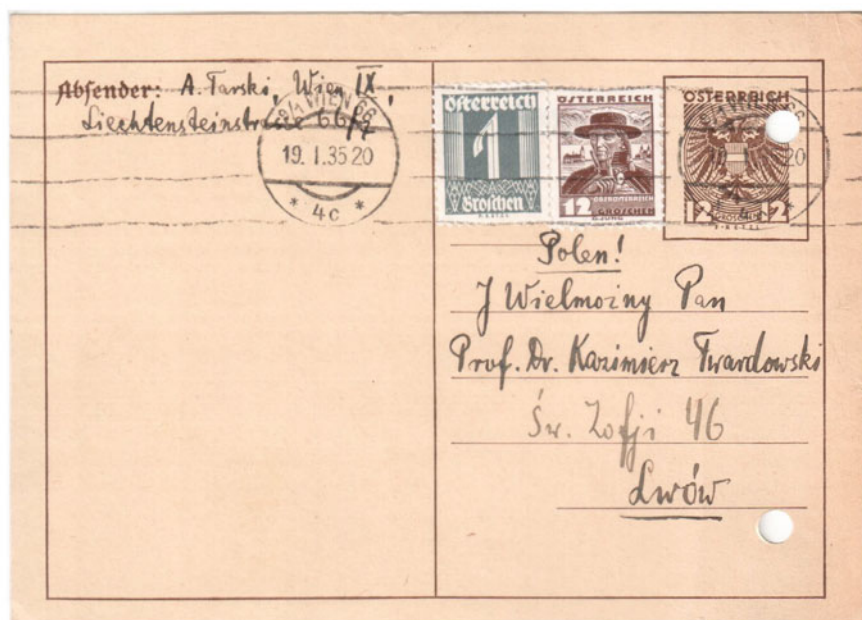 Absender: A. Tarski, Wien IX,
Liechtensteinstraße 66/4
WIEN 66
19. I. 35 20
* 4c *
Österreich
1
Groschen
ÖSTERREICH
OBERÖSTERREICH
12 GROSCHEN
ÖSTERREICH
20
12 GROSCHEN 12
Polen!
J Wielmożny Pan
Prof. Dr. Kazimierz Twardowski
Św. Zofji 46
Lwów